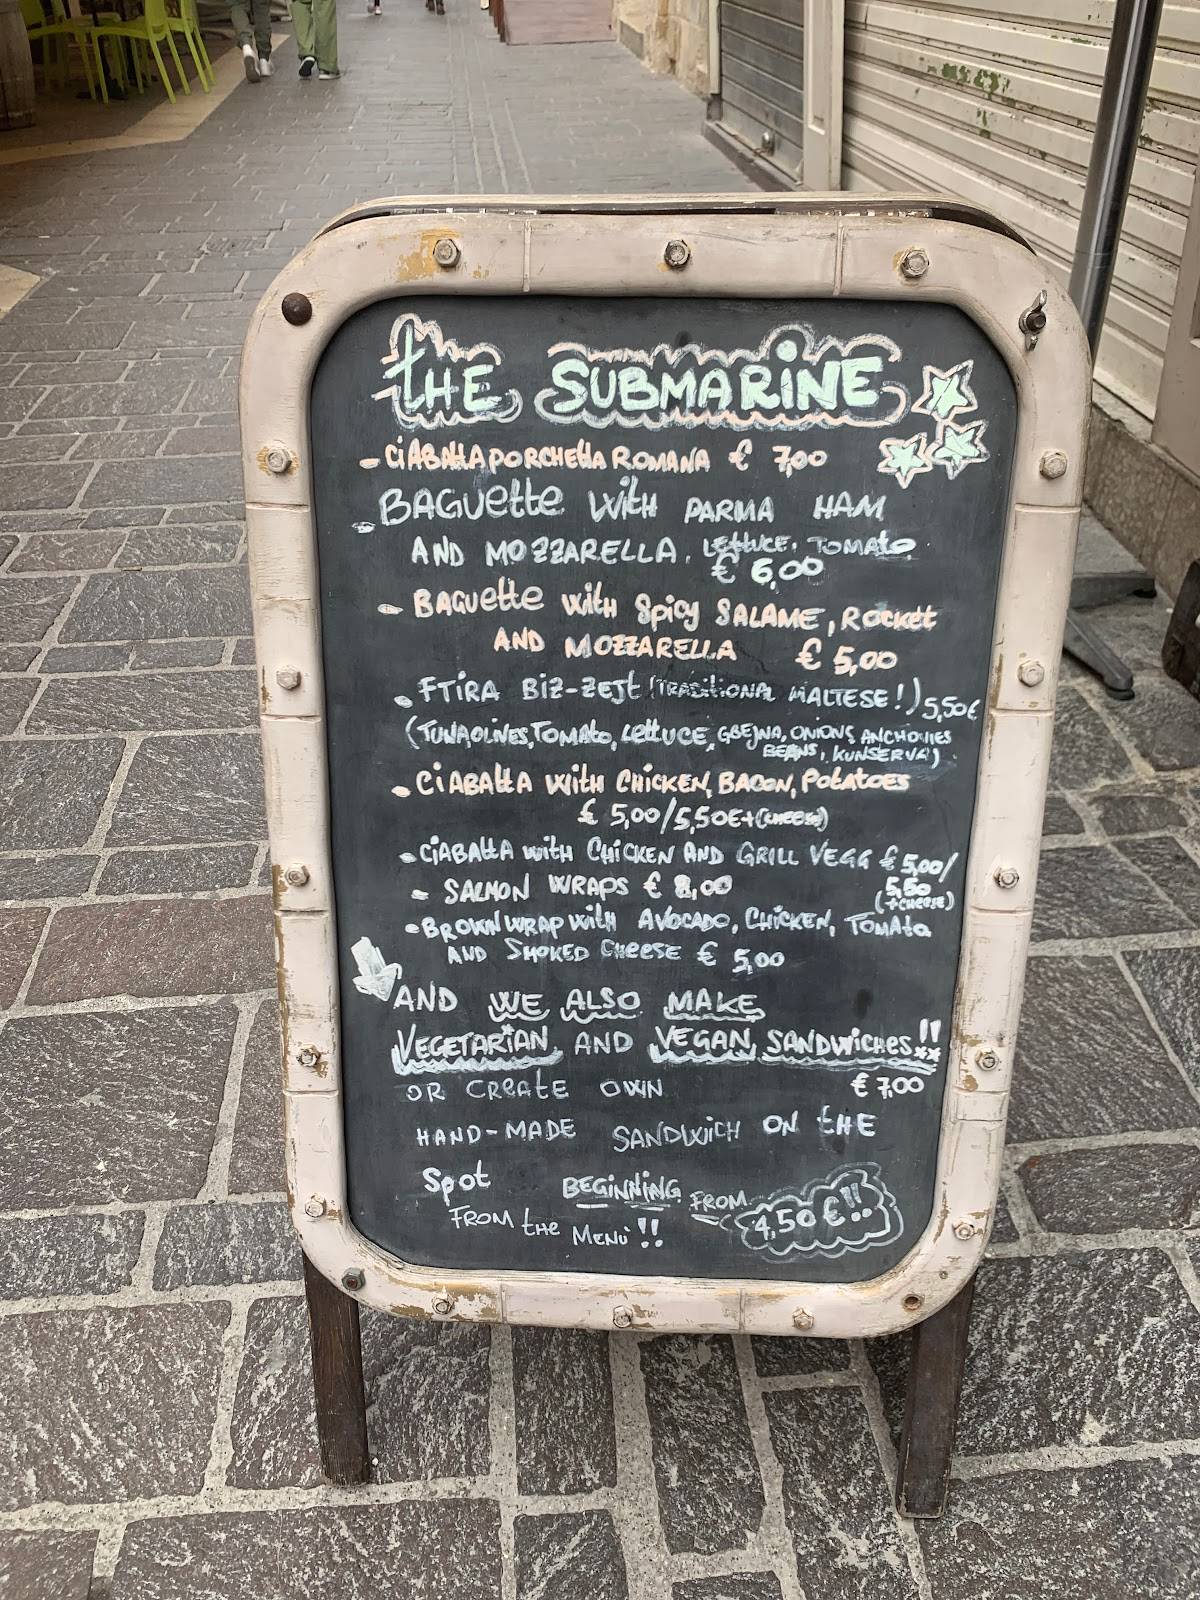 THE SUBMARINE
- CIABATTA PORCHETTA ROMANA € 7,00
- BAGUETTE WITH PARMA HAM
AND MOZZARELLA, LETTUCE, TOMATO
€ 6,00
- BAGUETTE WITH SPICY SALAME, ROCKET
AND MOZZARELLA € 5,00
• FTIRA BIZ-ZEJT (TRADITIONAL MALTESE!) 5,50€
(TUNA OLIVES, TOMATO, LETTUCE, GBEJNA, ONIONS, ANCHOVIES
BEANS, KUNSERVA)
• CIABATTA WITH CHICKEN, BACON, POTATOES
€ 5,00/5,50€+(CHEESE)
• CIABATTA WITH CHICKEN AND GRILL VEGG € 5,00/
5,50
(+CHEESE)
- SALMON WRAPS € 8,00
• BROWN WRAP WITH AVOCADO, CHICKEN, TOMATO
AND SMOKED CHEESE € 5,00
AND WE ALSO MAKE
VEGETARIAN AND VEGAN SANDWICHES!!
€ 7,00
OR CREATE OWN
HAND-MADE SANDWICH ON THE
SPOT BEGINNING FROM 4,50 €!!
FROM THE MENÙ!!